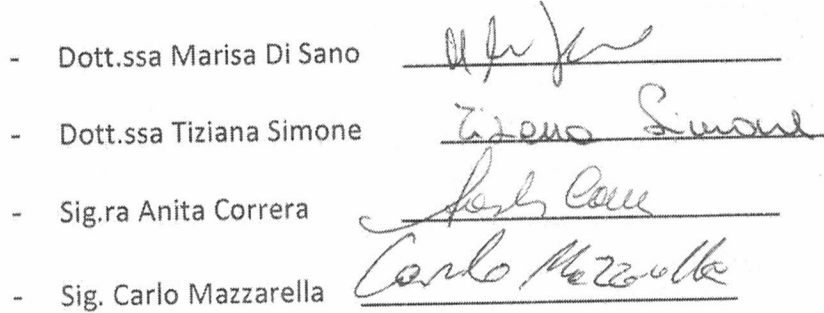 - Dott.ssa Marisa Di Sano
- Dott.ssa Tiziana Simone Tiziana Simone
- Sig.ra Anita Correra
- Sig. Carlo Mazzarella Carlo Mazzarella